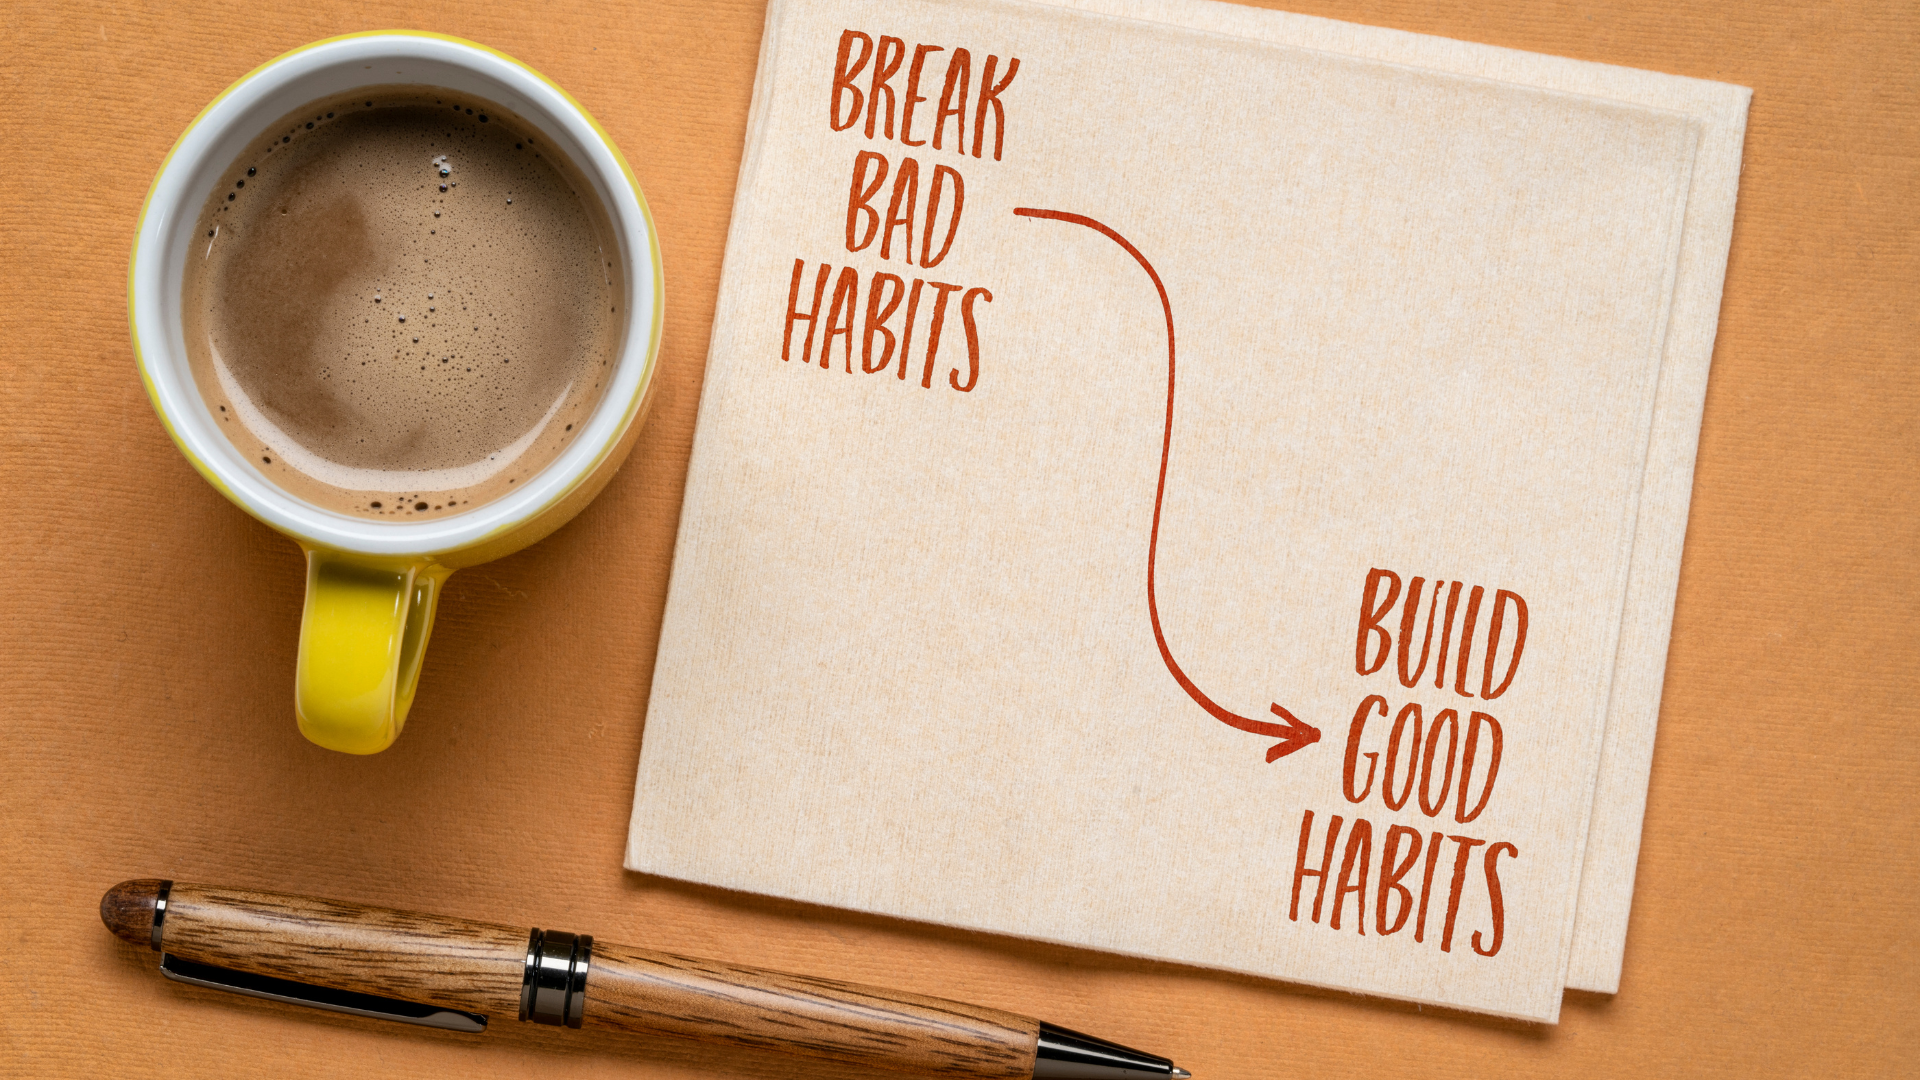 BREAK
BAD
HABITS
BUILD
GOOD
HABITS